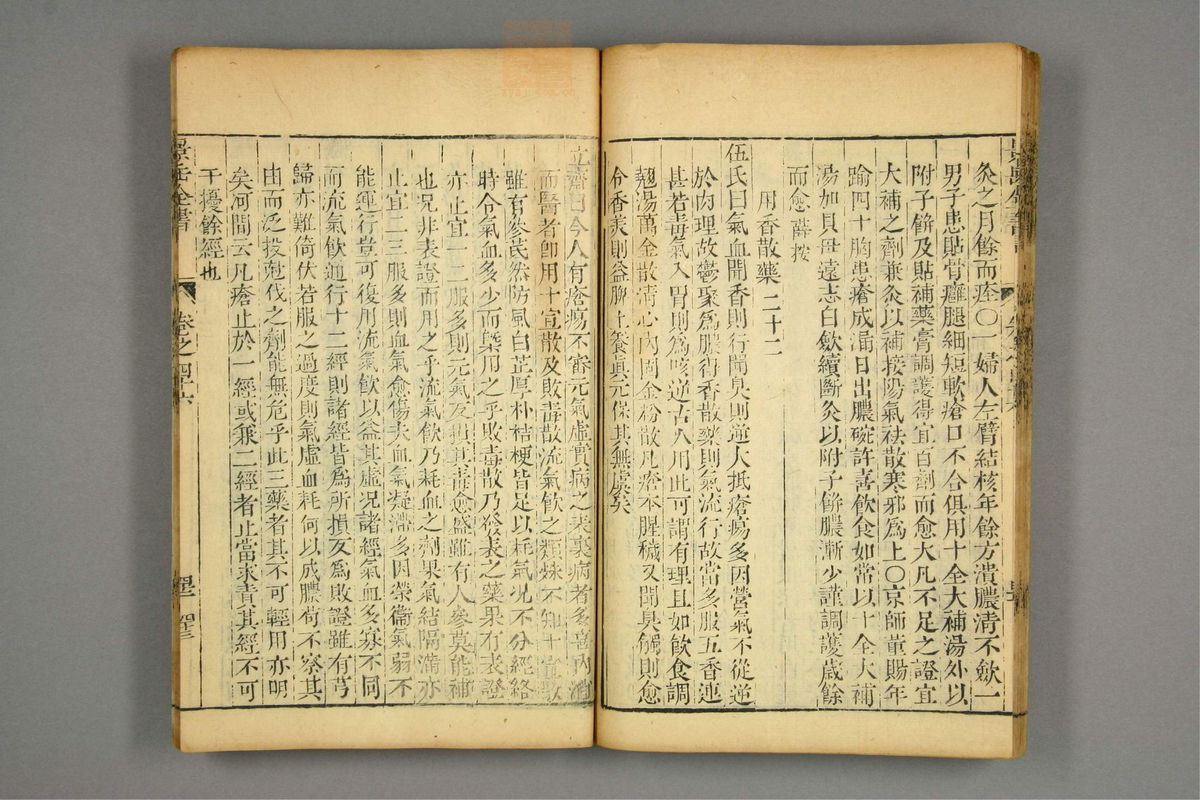 灸之月餘而痊〇一婦人左臂結核年餘方潰膿清不歛一
男子患貼骨癰腿細短軟瘡口不合俱用十全大補湯外以
附子餅及貼補藥膏調護得宜百劑而愈大凡不足之證宜
大補之劑兼灸以補接陽氣祛散寒邪爲上〇京師董賜年
踰四十胸患瘡成漏日出膿碗許喜飲食如常以十全大補
湯加貝母遠志白歛續斷灸以附子餅膿漸少謹調護歳餘
而愈薛按
用香散藥二十二
伍氏曰氣血聞香則行聞臭則逆大抵瘡瘍多因營氣不從逆
於肉理故鬱聚爲膿得香散藥則氣流行故當多服五香連
翹湯萬金散清心內固金粉散凡瘡本腥穢又聞臭觸則愈
甚若毒氣入胃則爲咳逆古人用此可謂有理且如飲食調
令香美則益脾土養眞元保其無虞矣
立齋曰今人有瘡瘍不審元氣虛實病之表裏病者多喜內消
而醫者卽用十宣散及敗毒散流氣飲之類殊不知十宣散
雖有參芪然防風白芷厚朴桔梗皆足以耗氣况不分經絡
時令氣血多少而槩用之乎敗毒散乃發表之藥果有表證
亦止宜一二服多則元氣反損其毒愈盛雖有人參莫能補
也况非表證而用之乎流氣飲乃耗血之劑果氣結隔滿亦
止宜二三服多則血氣愈傷夫血氣凝滯多因榮衞氣弱不
能運行豈可復用流氣飲以益其虛况諸經氣血多寡不同
而流氣飲通行十二經則諸經皆爲所損反爲敗證雖有芎
歸亦難倚伏若服之過度則氣虛血耗何以成膿苟不察其
由而泛投尅伐之劑能無危乎此三藥者其不可輕用亦明
矣河間云凡瘡止於一經或兼二經者止當求責其經不可
干擾餘經也
景岳全書
卷之四十六